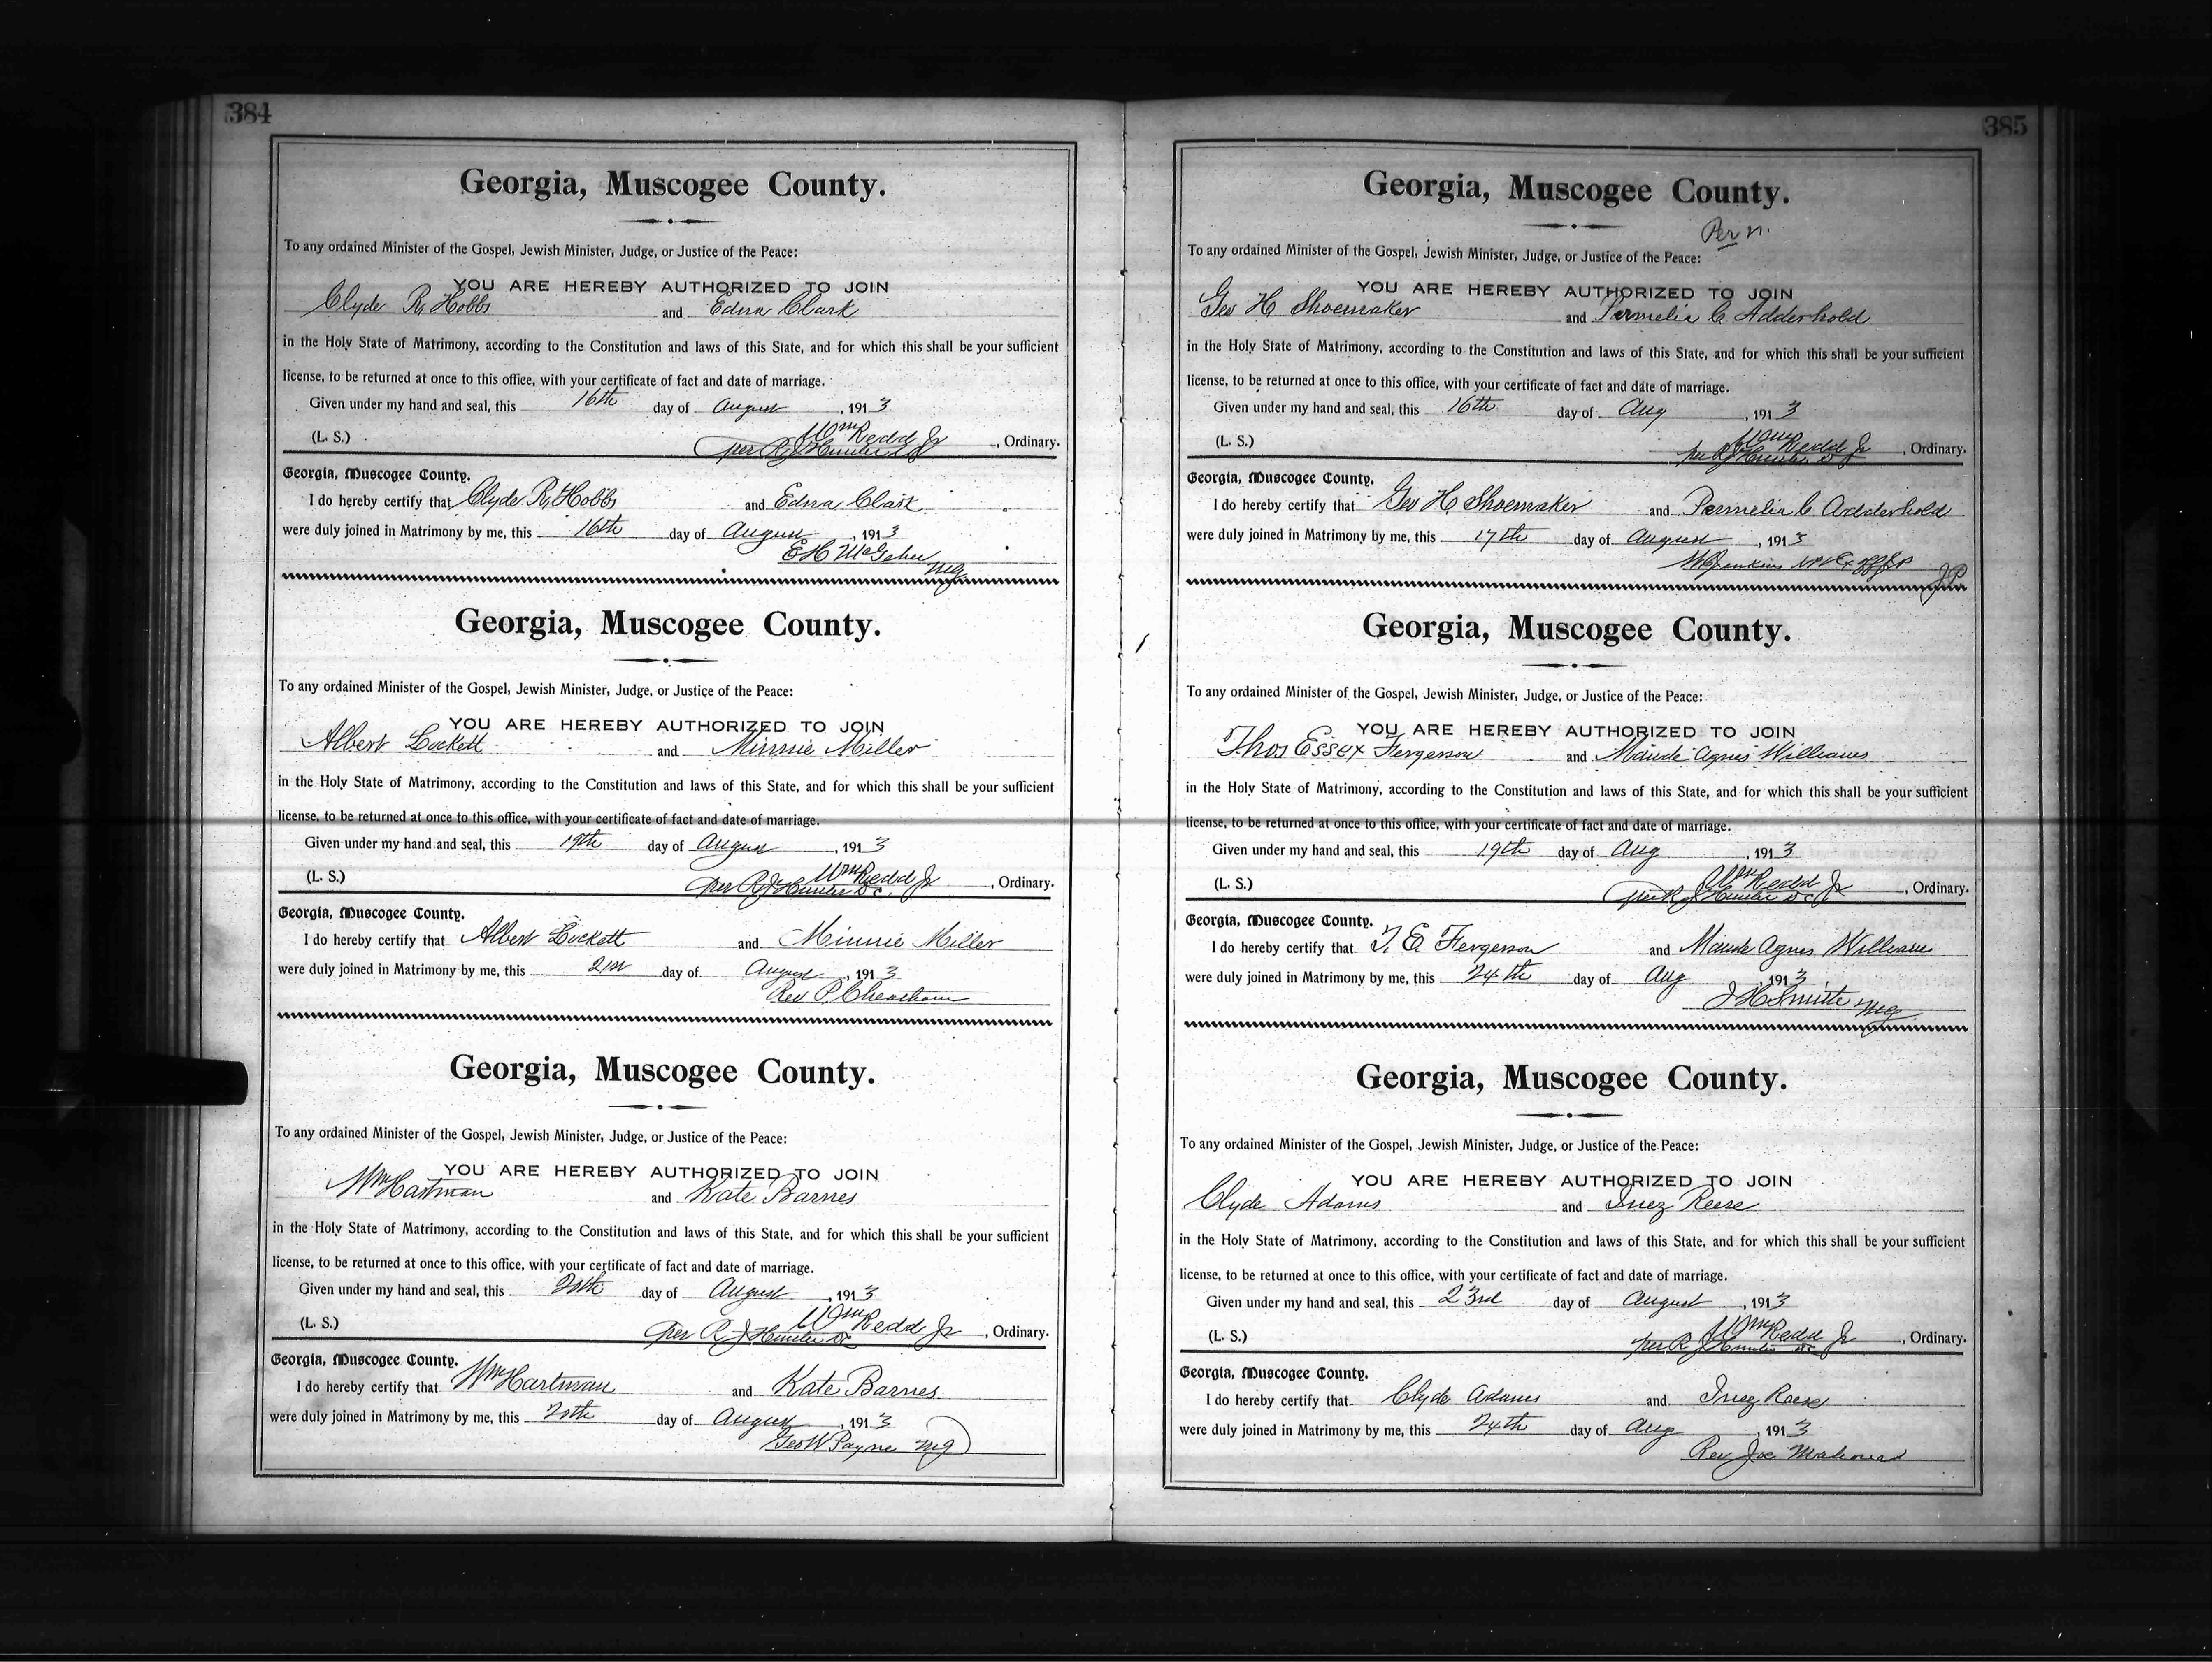 384
Georgia, Muscogee County.
To any ordained Minister of the Gospel, Jewish Minister, Judge, or Justice of the Peace:
YOU ARE HEREBY AUTHORIZED TO JOIN
Clyde R. Hobbs and Edna Clark
in the Holy State of Matrimony, according to the Constitution and laws of this State, and for which this shall be your sufficient
license, to be returned at once to this office, with your certificate of fact and date of marriage.
Given under my hand and seal, this 16th day of August, 1913
Wm Redd Jr
(L. S.) per R J Hunter, Ordinary.
Georgia, Muscogee County.
I do hereby certify that Clyde R. Hobbs and Edna Clark
were duly joined in Matrimony by me, this 16th day of August, 1913
E H McGehee
MG
Georgia, Muscogee County.
To any ordained Minister of the Gospel, Jewish Minister, Judge, or Justice of the Peace:
YOU ARE HEREBY AUTHORIZED TO JOIN
Albert Lockett and Minnie Miller
in the Holy State of Matrimony, according to the Constitution and laws of this State, and for which this shall be your sufficient
license, to be returned at once to this office, with your certificate of fact and date of marriage.
Given under my hand and seal, this 19th day of August, 1913
Wm Redd Jr
(L. S.) per R J Hunter DC, Ordinary.
Georgia, Muscogee County.
I do hereby certify that Albert Lockett and Minnie Miller
were duly joined in Matrimony by me, this 21st day of August, 1913
Rev P. Cheatham
Georgia, Muscogee County.
To any ordained Minister of the Gospel, Jewish Minister, Judge, or Justice of the Peace:
YOU ARE HEREBY AUTHORIZED TO JOIN
Wm Hartman and Kate Barnes
in the Holy State of Matrimony, according to the Constitution and laws of this State, and for which this shall be your sufficient
license, to be returned at once to this office, with your certificate of fact and date of marriage.
Given under my hand and seal, this 20th day of August, 1913
Wm Redd Jr
(L. S.) per R J Hunter DC, Ordinary.
Georgia, Muscogee County.
I do hereby certify that Wm Hartman and Kate Barnes
were duly joined in Matrimony by me, this 20th day of August, 1913
Geo W Payne MG
385
Georgia, Muscogee County.
Per n.
To any ordained Minister of the Gospel, Jewish Minister, Judge, or Justice of the Peace:
YOU ARE HEREBY AUTHORIZED TO JOIN
Geo H Shoemaker and Permelia C Adderhold
in the Holy State of Matrimony, according to the Constitution and laws of this State, and for which this shall be your sufficient
license, to be returned at once to this office, with your certificate of fact and date of marriage.
Given under my hand and seal, this 16th day of Aug, 1913
Wm Redd Jr
(L. S.) per R J Hunter, Ordinary.
Georgia, Muscogee County.
I do hereby certify that Geo H Shoemaker and Permelia C Adderhold
were duly joined in Matrimony by me, this 17th day of August, 1913
Jenkins
JP
Georgia, Muscogee County.
To any ordained Minister of the Gospel, Jewish Minister, Judge, or Justice of the Peace:
YOU ARE HEREBY AUTHORIZED TO JOIN
Thos Essex Fergerson and Maude Agnes Williams
in the Holy State of Matrimony, according to the Constitution and laws of this State, and for which this shall be your sufficient
license, to be returned at once to this office, with your certificate of fact and date of marriage.
Given under my hand and seal, this 19th day of Aug, 1913
Wm Redd Jr
(L. S.) per R J Hunter DC, Ordinary.
Georgia, Muscogee County.
I do hereby certify that T. E. Fergerson and Maude Agnes Williams
were duly joined in Matrimony by me, this 24th day of Aug, 1913
J H Smith MG
Georgia, Muscogee County.
To any ordained Minister of the Gospel, Jewish Minister, Judge, or Justice of the Peace:
YOU ARE HEREBY AUTHORIZED TO JOIN
Clyde Adams and Inez Reese
in the Holy State of Matrimony, according to the Constitution and laws of this State, and for which this shall be your sufficient
license, to be returned at once to this office, with your certificate of fact and date of marriage.
Given under my hand and seal, this 23rd day of August, 1913
Wm Redd Jr
(L. S.) per R J Hunter DC, Ordinary.
Georgia, Muscogee County.
I do hereby certify that Clyde Adams and Inez Reese
were duly joined in Matrimony by me, this 24th day of Aug, 1913
Rev Joe